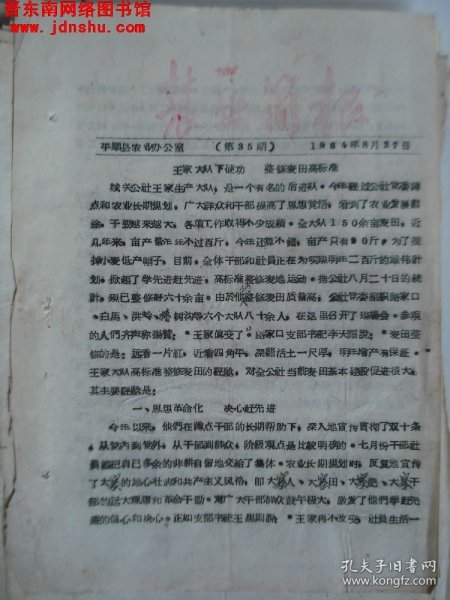 晋东南网络图书馆
www.jdnshu.com
农业简报
平顺县农业办公室 （第35期） 1964年8月27日
王家大队下硬功 整修麦田高标准
公社王家生产大队，是一个有名的后进队。今年经过公社党委
点和农业长期规划，广大群众和干部提高了思想觉悟，看到了农业发展前
途，干劲越来越大，各项工作取得不少成绩。全大队150余亩麦田，近
几年来，亩产量年年不过百斤，今年还算不错，亩产只有90斤，为了摆
掉小麦低产帽子，目前，全体干部和社员正在为实现明年二百斤的增产计
划，掀起了学先进赶先进，高标准整修麦地运动。据公社八月二十日的统
计，现已整修好六十余亩。由於他们整修麦田质量高，公社党委组织 家口
、白马、洪岭、 树沟等六个大队八十余人，在这里召开了现场会。参观
的人们齐声称赞："王家真变了。" 家口支部书记李天 说："麦田整
修的是：远看一片红，近看四角平，深翻活土一尺厚，明年增产有保证。
王家大队高标准整修麦田的经验，对全公社当前麦田基本建设促进很大。
其主要经验是：
一、思想革命化 决心赶先进
今年以来，他们在蹲点干部的长期帮助下，深入地宣传贯彻了双十条，
从党内到党外，从干部到群众，阶级观点是比较明确的。七月份干部社
员都把自已多余的非耕自留地交给了集体。农业长期规划时，反复地宣传
了大寨的雄心壮志和共产主义风格，即大寨人、大寨田、大寨肥、大寨干
部的远大理想和革命干劲。对广大干部群众鼓午极大，激发了他们学赶先
进的信心和决心。正如支部书记王 说："王家再不改 ，社员生活一
孔夫子旧书网
www.kongfz.com